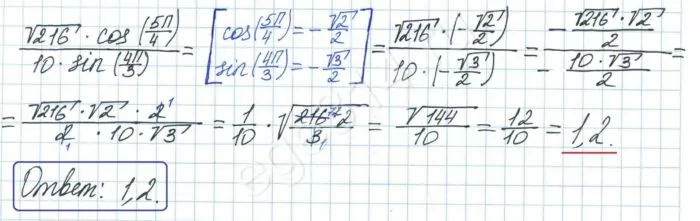 √216 · cos(5π/4) / 10 · sin(4π/3) = [cos(5π/4) = -√2/2 sin(4π/3) = -√3/2] = √216 · (-√2/2) / 10 · (-√3/2) = -√216 · √2/2 / -10 · √3/2 =
= √216 · √2 · 2 1 / 2 1 · 10 · √3 = 1/10 · √(216 72 · 2 / 3 1) = √144/10 = 12/10 = 1,2.
Ответ: 1,2.